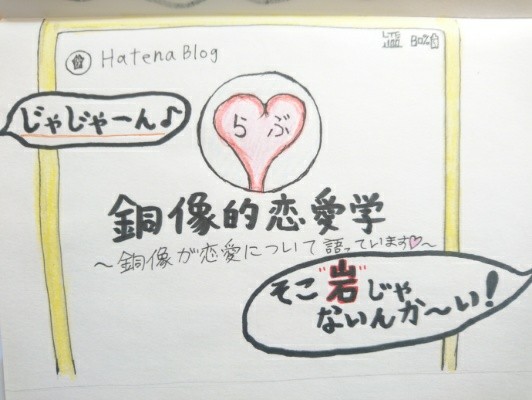 Hatena Blog
LTE
80%
じゃじゃーん♪
らぶ
銅像的恋愛学
～銅像が恋愛について語っています♡～
そこ"岩"じゃ
ないんか～い！